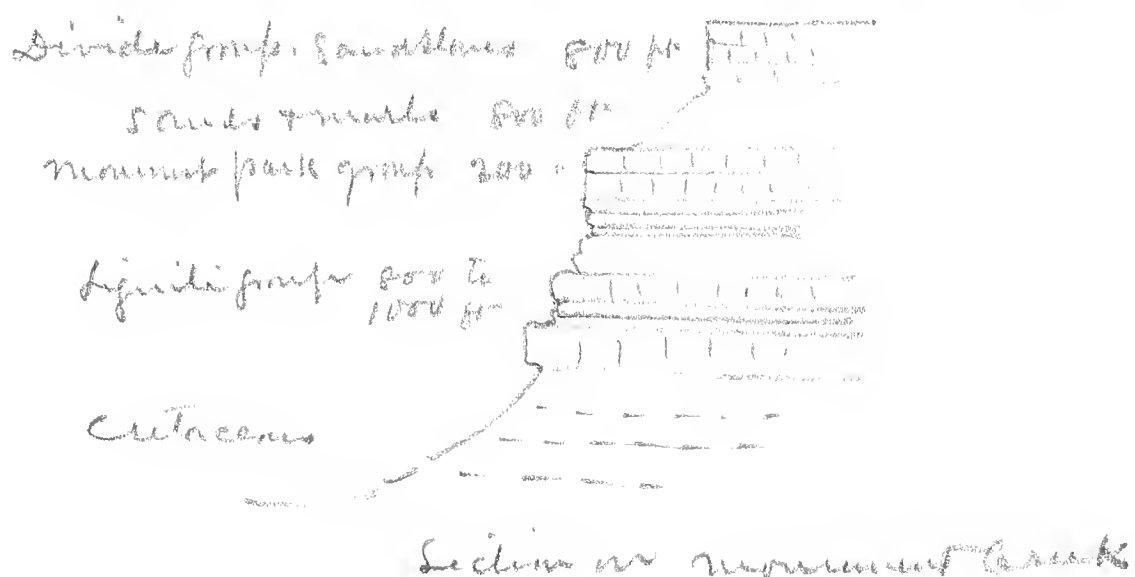 Divide group. Sandstone 800 ft
Sands & marls 800 ft
Monument park group 200
Lignite group 800 to
1000 ft
Cretaceous
Section on Monument Creek